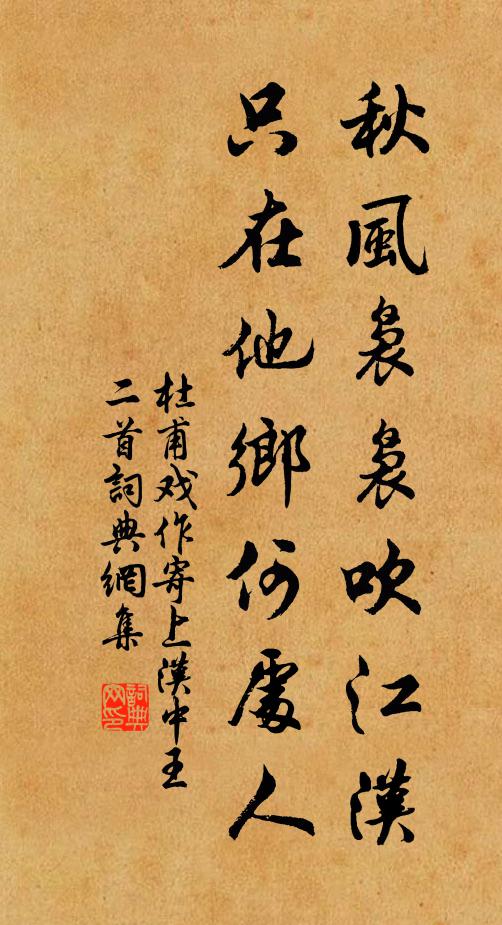 秋風裊裊吹江漢
只在他鄉何處人
杜甫戏作寄上漢中王
二首詞典網集
詞典
网印